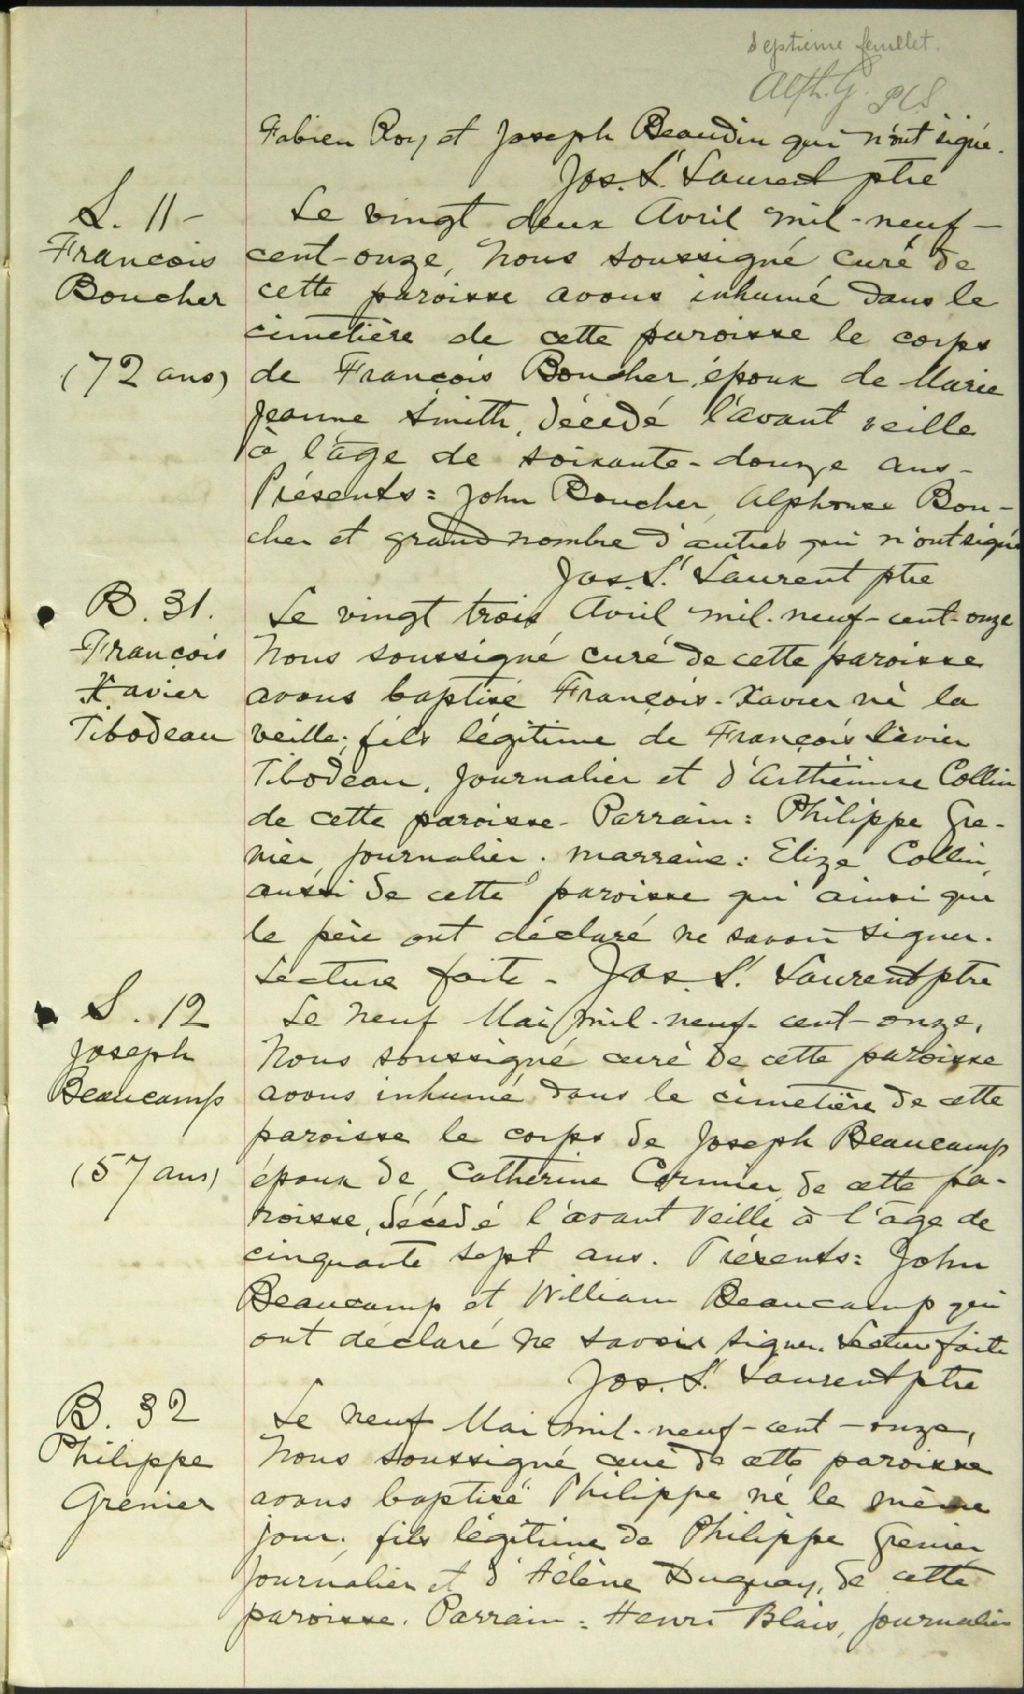 Septième feuillet.
Alph. G. PCS
Fabien Roy et Joseph Beaudin qui n'ont signé.
Jos. St. Laurent ptre
S. 11 -
François
Boucher
(72 ans)
Le vingt deux Avril mil-neuf-
cent-onze, Nous soussigné curé de
cette paroisse avons inhumé dans le
cimetière de cette paroisse le corps
de François Boucher, époux de Marie
Jeanne Smith, décédé l'avant veille
à l'âge de soixante-douze ans-
Présents: John Boucher, Alphonse Bou-
cher et grand nombre d'autres qui n'ont signé
Jos. St. Laurent ptre
B. 31.
François
Xavier
Tibodeau
Le vingt trois Avril mil-neuf-cent-onze
Nous soussigné curé de cette paroisse
avons baptisé François-Xavier né la
veille, fils légitime de François Xavier
Tibodeau, journalier et d'Arthémise Collin
de cette paroisse- Parrain: Philippe Gre-
nier, journalier. marraine: Elize Collin,
aussi de cette paroisse qui ainsi que
le père ont déclaré ne savoir signer.
Lecture faite - Jos. St. Laurent ptre
S. 12
Joseph
Beaucamp
(57 ans)
Le neuf Mai mil-neuf-cent-onze,
Nous soussigné curé de cette paroisse
avons inhumé dans le cimetière de cette
paroisse le corps de Joseph Beaucamp
époux de Catherine Cormier de cette pa-
roisse, décédé l'avant veille à l'âge de
cinquante sept ans. Présents: John
Beaucamp et William Beaucamp qui
ont déclaré ne savoir signer. Lecture faite
Jos. St. Laurent ptre
B. 32
Philippe
Grenier
Le neuf Mai mil-neuf-cent-onze,
Nous soussigné curé de cette paroisse
avons baptisé Philippe né le même
jour, fils légitime de Philippe Grenier
journalier et d'Hélène Duguay, de cette
paroisse. Parrain: Henri Blais, journalier